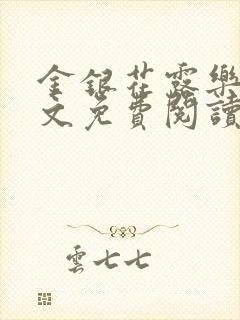 金銀花露樂
文免費閱讀
雲七七